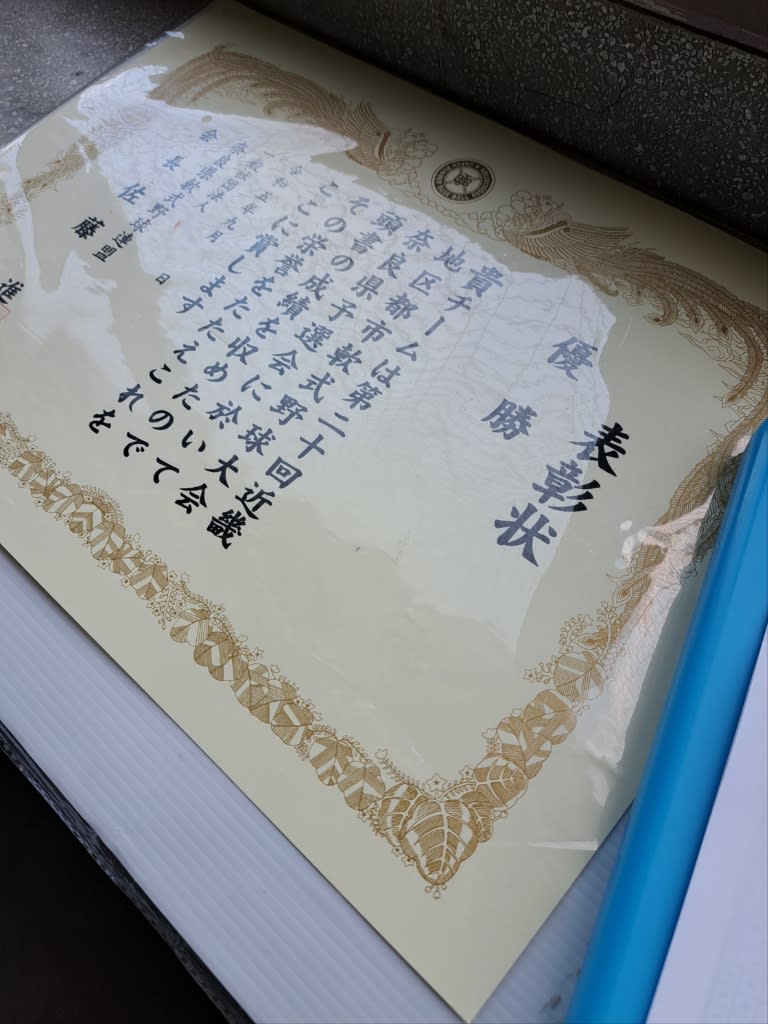 表彰状
優勝
貴チームは第二十回近畿
地区都市軟式野球大会
奈良県予選会に於いて
頭書の成績を収めたので
その栄誉をたたえこれを
ここに賞します
令和五年九月 日
一般社団法人
奈良県軟式野球連盟
会長 佐藤 進